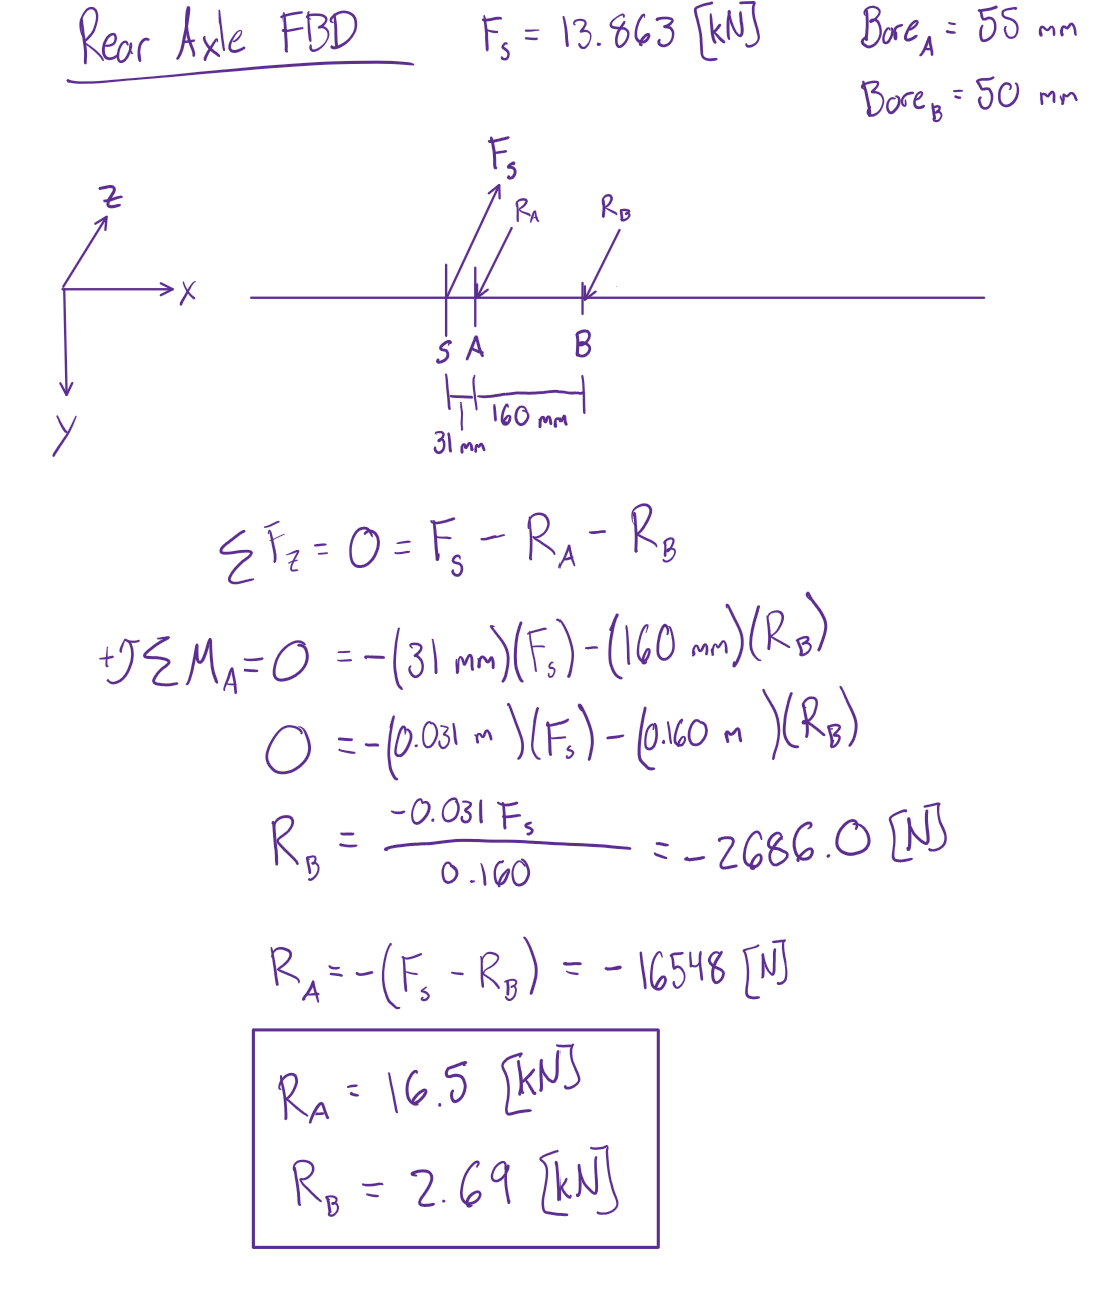 Rear Axle FBD
F_s = 13.863 [kN]
Bore_A = 55 mm
Bore_B = 50 mm
F_s
R_A
R_B
z
x
y
S A B
31 mm
160 mm
ΣF_z = 0 = F_s - R_A - R_B
+↺ΣM_A = 0 = -(31 mm)(F_s) - (160 mm)(R_B)
0 = -(0.031 m)(F_s) - (0.160 m)(R_B)
R_B = -0.031 F_s / 0.160 = -2686.0 [N]
R_A = -(F_s - R_B) = -16548 [N]
R_A = 16.5 [kN]
R_B = 2.69 [kN]